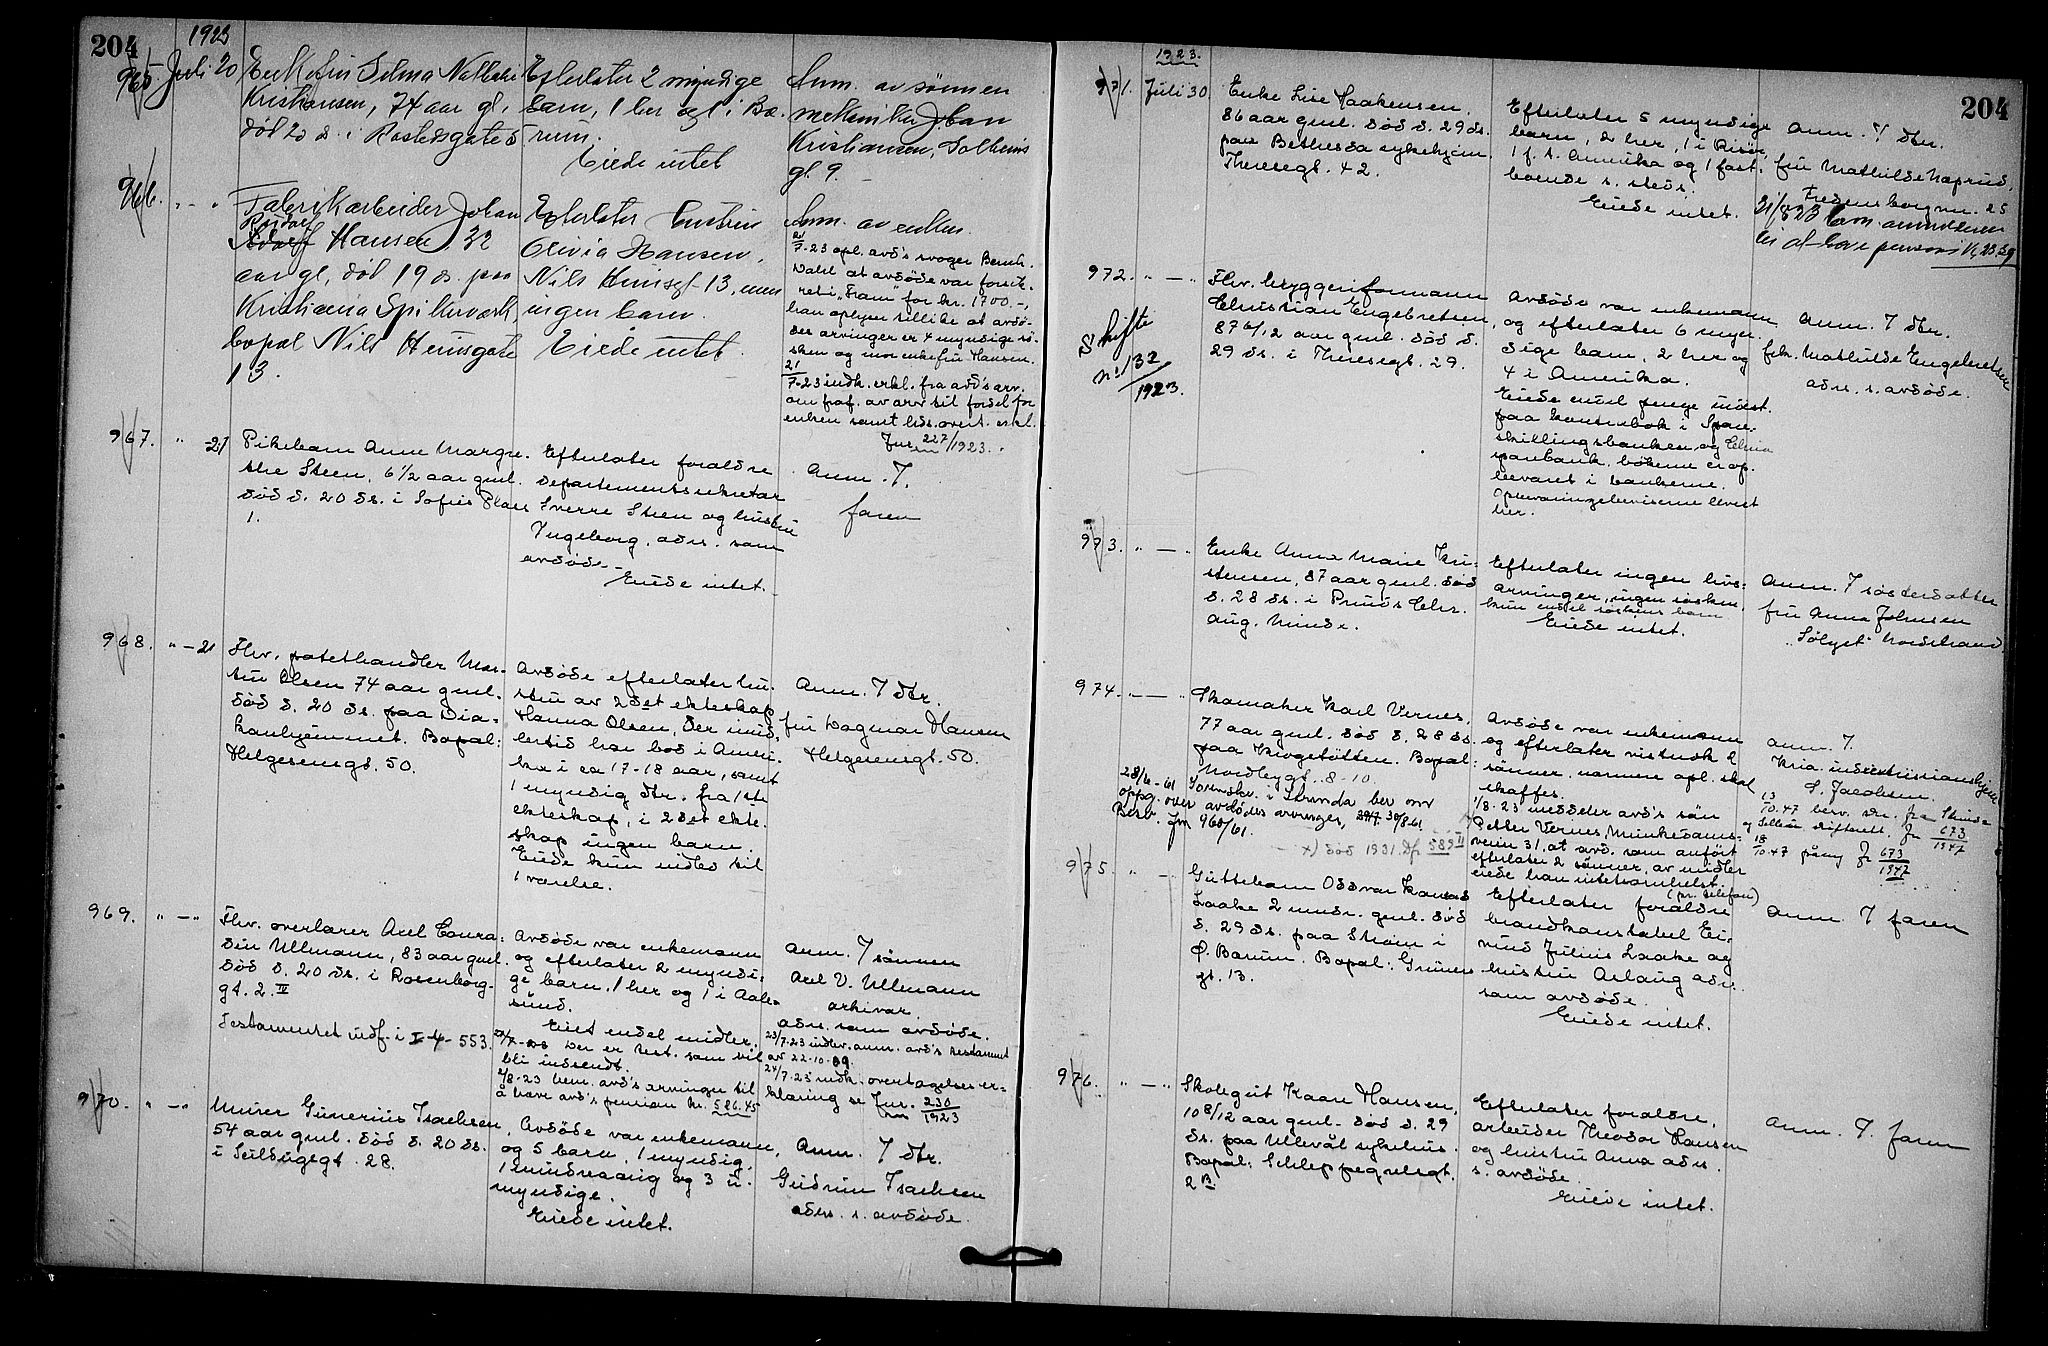 204
1923
965. Juli 20
Enkefru Selma Nathalie
Kristiansen, 74 aar gl,
død 20 ds. i Rostedsgate 5
Efterlater 2 myndige
barn, 1 her og 1 i Bæ-
rum.
Eiede intet
Anm. av sønnen
mekaniker Johan
Kristiansen, Solheims
gt. 9.
966. " - "
Fabrikarbeider Johan
Hansen, 32
aar gl, død 19 ds. paa
Kristiania Spikerverk,
bopæl Nils Huusgate
13.
Efterlater hustru
Olivia Hansen,
Nils Huusgt 13, men
ingen barn.
Eiede intet.
Anm. av enken.
21/7-23 opl. avd's svoger Bernh.
Dahl at avdøde var forsik-
ret i "Fram" for kr. 1700.-,
han oplyser tillike at avdø-
des arvinger er 4 myndige sø-
sken og mor enkefru Hansen.
21/7-23 indk. erkl. fra avd's arv.
om fraf. av arv til fordel for
enken samt eds. overt. erkl.
Jnr 227/1923.
967. " -21
Pikebarn Anne Margre-
the Steen, 6 1/2 aar gml.
død d. 20 ds. i Sofies Plass
1.
Efterlater foraldre
departementssekretær
Sverre Steen og hustru
Ingeborg, adr. som
avdøde.
Eiede intet.
Anm. f.
faren
968. " - 21
Fhv. potethandler Mar-
tin Olsen 74 aar gml.
død d. 20 ds. paa Dia-
konhjemmet. Bopæl:
Helgesensgt. 50.
Avdøde efterlater hu-
stru av 2det ekteskap
Hanna Olsen, der imid-
lertid har bod i Ameri-
ka i ca 17-18 aar, samt
1 myndig dtr. fra 1ste
ekteskap, i 2det ekte-
skap ingen barn.
Eiede kun indbo til
1 værelse.
Anm. f dtr.
fru Dagmar Hansen
Helgesensgt. 50.
969. " - "
Fhv. overlærer Axel Conra-
din Ullmann, 83 aar gml
død d. 20 ds. i Rosenborg-
gt. 2. II
Testamentet indf. i I-4-553.
Avdøde var enkemann
og efterlater 2 myndi-
ge barn, 1 her og 1 i Aale-
sund.
Eiet endel midler.
Der er test. som vil
bli indsendt.
2/8-23 bem. avd's arvinger til
å hæve avd's pension kr. 586.45
Anm. f sønnen
Axel V. Ullmann
arkivar
adr. som avdøde.
23/7-23 indlev. anm. avd's testament
av 22-10-09.
24/7-23 indk. overtagelseser-
klæring se Jnr. 230/1923
970. " - "
Murer Gunerius Isachsen,
54 aar gml. død d. 20 ds.
i Seilduksgt. 28.
Avdøde var enkemann,
og 5 barn, 1 myndig,
1 mindreaarig og 3 u-
myndige.
Eiede intet.
Anm. f dtr.
Gudrun Isachsen
adr. s. avdøde.
1923.
204
971. Juli 30
Enke Lise Haakensen,
86 aar gml. død d. 29 ds.
paa Bethesda sykehjem
Theresegt. 42.
Efterlater 5 myndige
barn, 2 her, 1 i Risør,
1 f. t. Amerika og 1 fast-
boende s. steds.
Eiede intet.
Anm. f dtr.
fru Mathilde Næprud,
Fredensborgvn. 25
21/8 23 bem. anmelderen
til at hæve pension
972. " - "
Skifte
nr 132/1923.
Fhv. bryggeriformann
Christian Engebretsen,
87 6/12 aar gml. død d.
29 ds. i Theresegt. 29.
Avdøde var enkemann
og efterlater 6 myn-
dige barn, 2 her og
4 i Amerika.
Eiede endel penge indest.
paa kontrabok i Spare-
skillingsbanken og Chria
sparebank, bøkene er op-
bevaret i bankene.
Opbevaringsbevisene levert
her.
Anm. f dtr.
frk. Mathilde Engebretsen
adr. s. avdøde.
973. " - "
Enke Anna Marie Kri-
stensen, 87 aar gml. død
d. 28 ds. i Prinds Chr.
Aug. Minde.
Efterlater ingen livs-
arvinger, ingen søsken,
kun endel søskens barn
Eiede intet.
Anm. f søsterdatter
fru Anna Johnsen
"Solyst" Nordstrand
974. " - "
Skomaker Karl Vernes,
77 aar gml. død d. 28 ds.
paa Krogstøtten. Bopæl:
Nordbygt. 8-10.
28/6-61 Sorenskr. i Strinda ber om
oppg. over avdødes arvinger, 30/8 61.
Besv. jnr 960/61.
x) død 1931. Df. 589 II
Avdøde var enkemann
og efterlater vistnok 2
sønner, navnene opl. skal
skaffes.
1/8-23 meddeler avd's søn
Petter Vernes, Munkedams-
veien 31, at avd. som anført
efterlater 2 sønner, av midler
eiede han intetsomhelst.
(pr. telefon)
Anm. f.
Kria.
S. Jacobsen.
13/10.47 besv. skr. fra Strinda
og Selbu skifterett. Jr 673/1947
18/10.47 påny Jr 673/1947
975. " - "
Guttebarn Oddvar Konrad
Laake 2 mndr. gml. død
d. 29 ds. paa Strøm i
Ø. Bærum. Bopæl: Grüners
gt. 13.
Efterlater foraldre
brandkonstabel Ei-
vind Julius Laake og
hustru Aslaug adr.
som avdøde.
Eiede intet.
Anm. f faren
976. " - "
Skolegut Kaare Hansen,
10 8/12 aar gml. død d. 29
ds. paa Ullevål sykehus.
Bopæl: Schleppegrelsgt.
2 B
Efterlater foraldre,
arbeider Theodor Hansen
og hustru Anna adr.
s. avdøde.
Eiede intet.
Anm. f. faren